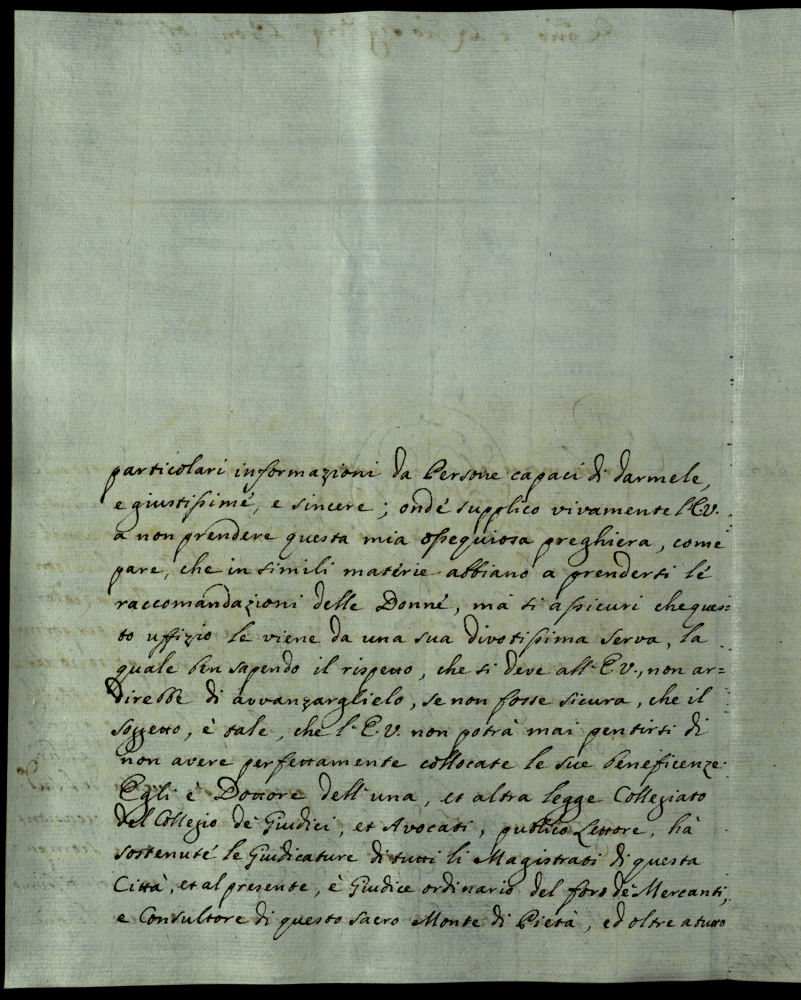 particolari informazioni da Persone capaci di darmele,
e giustissime, e sincere; onde supplico vivamente l'E.V.
a non prendere questa mia ossequiosa preghiera, come
pare, che in simili materie abbiano a prendersi le
raccomandazioni delle Donne, mà si assicuri che ques=
to uffizio le viene da una sua divotissima Serva, la
quale ben sapendo il rispetto, che si deve all'E.V., non ar=
direbbe di avvanzarglielo, se non fosse sicura, che il
soggetto, è tale, che l'E.V. non potrà mai pentirsi di
non avere perfettamente collocate le sue beneficenze.
Egli è Dottore dell'una, et altra legge Collegiato
del Collegio de Giudici, et Avocati, publico Lettore, hà
sostenute le Giudicature di tutti li Magistrati di questa
Città, et al presente, è Giudice ordinario del foro de Mercanti,
e Consultore di questo Sacro Monte di Pietà, ed oltre a tutto